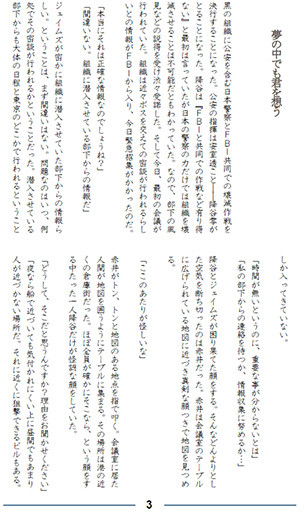 夢の中でも君を想う
黒の組織に公安を含む日本警察とFBI共同での壊滅作戦を
決行することになった。公安の指揮は安室透こと――降谷零が
とることになった。降谷は『FBIと共同での作戦など有り得
ない』と最初は言っていたが日本の警察の力だけでは組織を壊
滅させることは不可能だともわかっていた。なので、部下の風
見などの説得を受け渋々承諾した。そして今日、最初の会議が
行われていた。組織は近々ボスを交えての密談が行われるらし
いとの情報がFBIから入り、今日緊急招集がかかったのだ。
「本当にそれは正確な情報なのでしょうね？」
「間違いない。組織に潜入させている部下からの情報だ」
ジェイムズが密かに組織に潜入させていた部下からの情報ら
しい。ということは、まず間違いはない。問題なのはいつ、何
処でその密談が行われるかということだった。潜入させている
部下からも大体の日程と東京のどこかで行われるということ
しか入ってきていない。
「時間が無いというのに、重要な事が分からないとは」
「私の部下からの連絡を待つか、情報収集に努めるか…」
降谷とジェイムズが困り果てた顔をする。そんなどんよりとし
た空気を断ち切ったのは赤井だった。赤井は会議室のテーブル
に広げられている地図に近づき真剣な顔つきで地図を見つめ
る。
「ここのあたりが怪しいな」
赤井がトン、トンと地図のある地点を指で叩く。会議室に居た
人間が地図を囲うようにテーブルに集まる。その場所は港の近
くの倉庫街だった。ほぼ全員が確かにそこなら、という顔をす
る中たった一人降谷だけが怪訝な顔をしていた。
「どうして、そこだと思うんですか？理由をお聞かせください」
「夜なら船で近づいても気付かれにくい上に昼間でもあまり
人が近づかない場所だ。それに近くに狙撃できるビルもある。
3